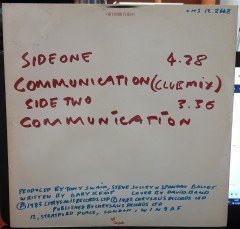 CHS 12 2662
SIDE ONE 4.28
COMMUNICATION (CLUB MIX)
SIDE TWO 3.36
COMMUNICATION
PRODUCED BY TONY SWAIN, STEVE JOLLEY & SPANDAU BALLET
WRITTEN BY GARY KEMP COVER BY DAVID BAND
Ⓟ 1983 CHRYSALIS RECORDS LTD © 1983 CHRYSALIS RECORDS LTD
PUBLISHED BY CHRYSALIS RECORDS LTD
12, STRATFORD PLACE, LONDON, W1N 9AF